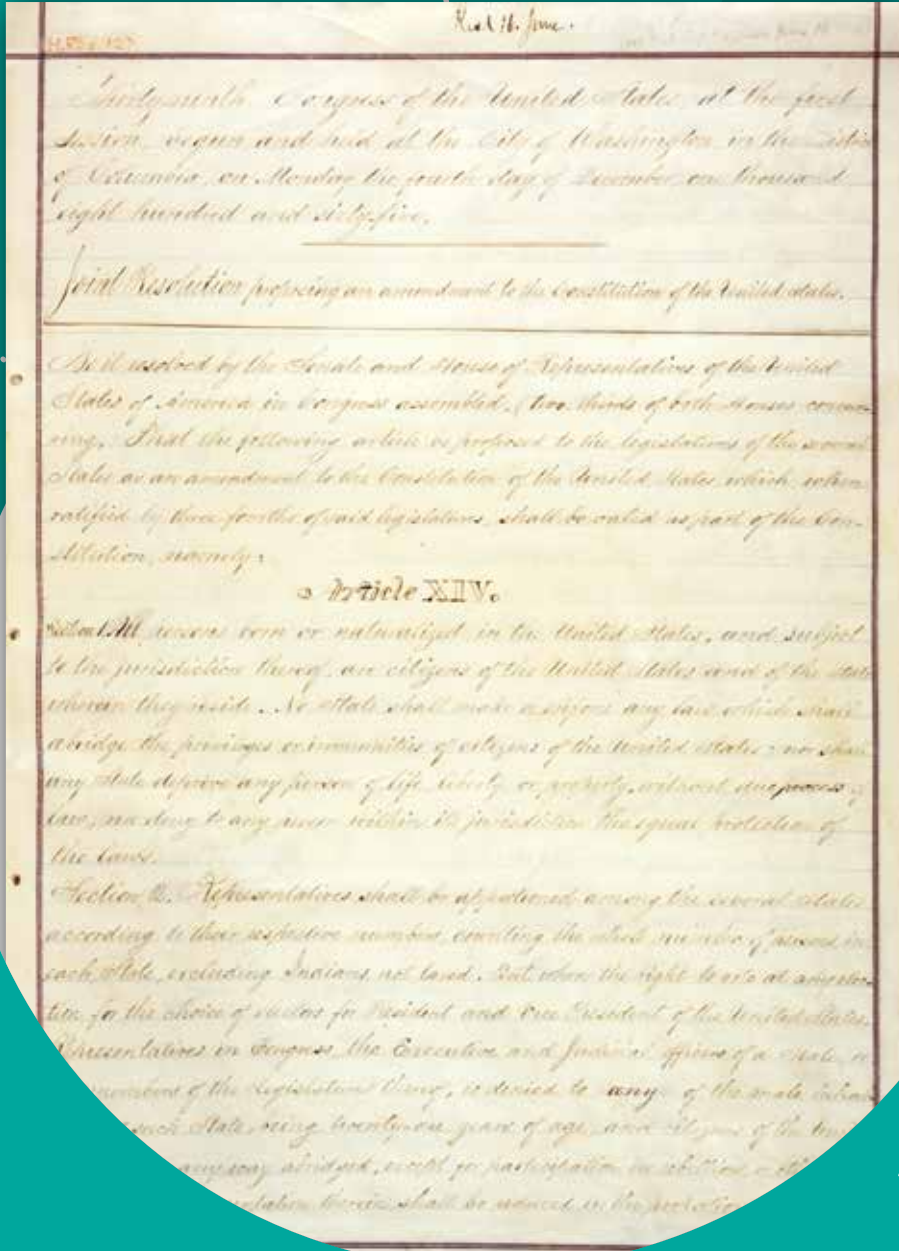 Recd 16. June.
Thirty-ninth Congress of the United States, at the first
session, begun and held at the City of Washington, in the District
of Columbia, on Monday the fourth day of December one thousand
eight hundred and sixty-five.
Joint Resolution proposing an amendment to the Constitution of the United States.
Be it resolved by the Senate and House of Representatives of the United
States of America in Congress assembled, (two thirds of both Houses concur-
ring,) That the following article be proposed to the legislatures of the several
States as an amendment to the Constitution of the United States, which, when
ratified by three fourths of said legislatures, shall be valid as part of the Con-
stitution, namely:
Article XIV.
Section 1. All persons born or naturalized in the United States, and subject
to the jurisdiction thereof, are citizens of the United States and of the State
wherein they reside. No State shall make or enforce any law which shall
abridge the privileges or immunities of citizens of the United States; nor shall
any State deprive any person of life, liberty, or property, without due process of
law; nor deny to any person within its jurisdiction the equal protection of
the laws.
Section 2. Representatives shall be apportioned among the several States
according to their respective numbers, counting the whole number of persons in
each State, excluding Indians not taxed. But when the right to vote at any elec-
tion for the choice of electors for President and Vice President of the United States,
Representatives in Congress, the Executive and Judicial officers of a State, or
members of the legislature thereof, is denied to any of the male
such State, being twenty-one years of age, and citizens of the
any way abridged, except for participation in rebellion, or
therein shall be reduced in the